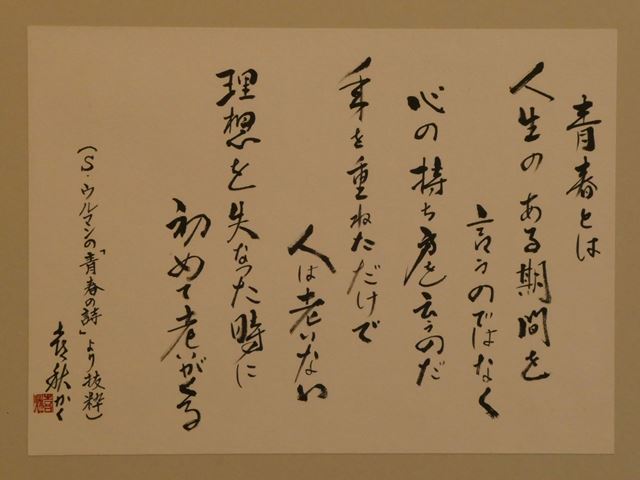 青春とは
人生のある期間を
言うのではなく
心の持ち方を云うのだ
年を重ねただけで
人は老いない
理想を失なった時に
初めて老いがくる
(S・ウルマンの「青春の詩」より抜粋)
秋かく